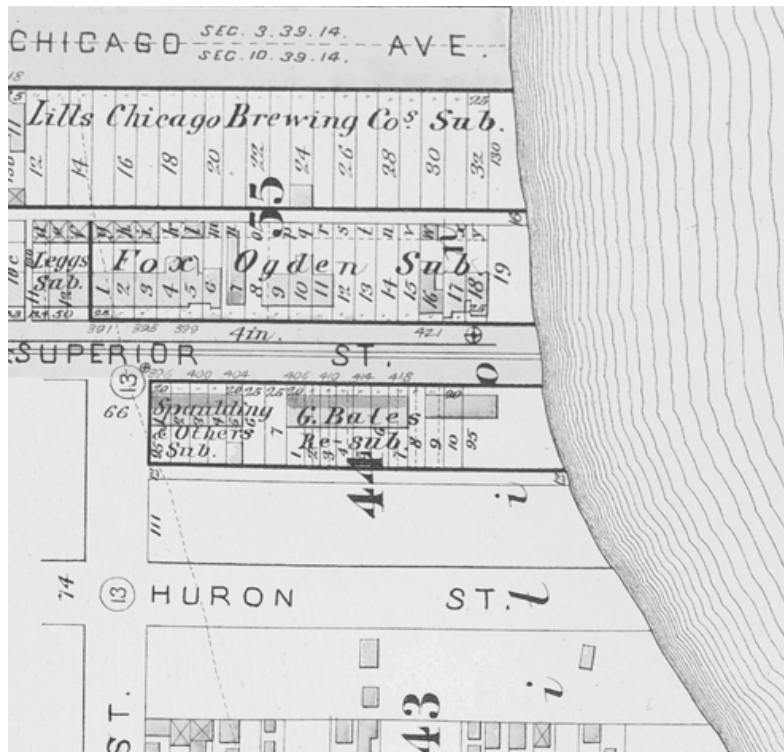 CHICAGO AVE.
SEC. 3.39.14.
SEC. 10.39.14.
18
25
Lills Chicago Brewing Cos Sub.
12 14 16 18 20 22 24 26 28 30 32 130
55
16
Leggs
Sub.
Fox Ogden Sub
1 2 3 4 5 6 7 8 9 10 11 12 13 14 15 16 17 18 19
391 395 399 4in. 421
SUPERIOR ST.
13
396 400 404 406 410 414 418
66
20 20 25 25 20 90
Spaulding
& Others
Sub.
G. Bates
Re-sub.
7 8 9 10 95
44
111
74
13
HURON ST.
43
ST.